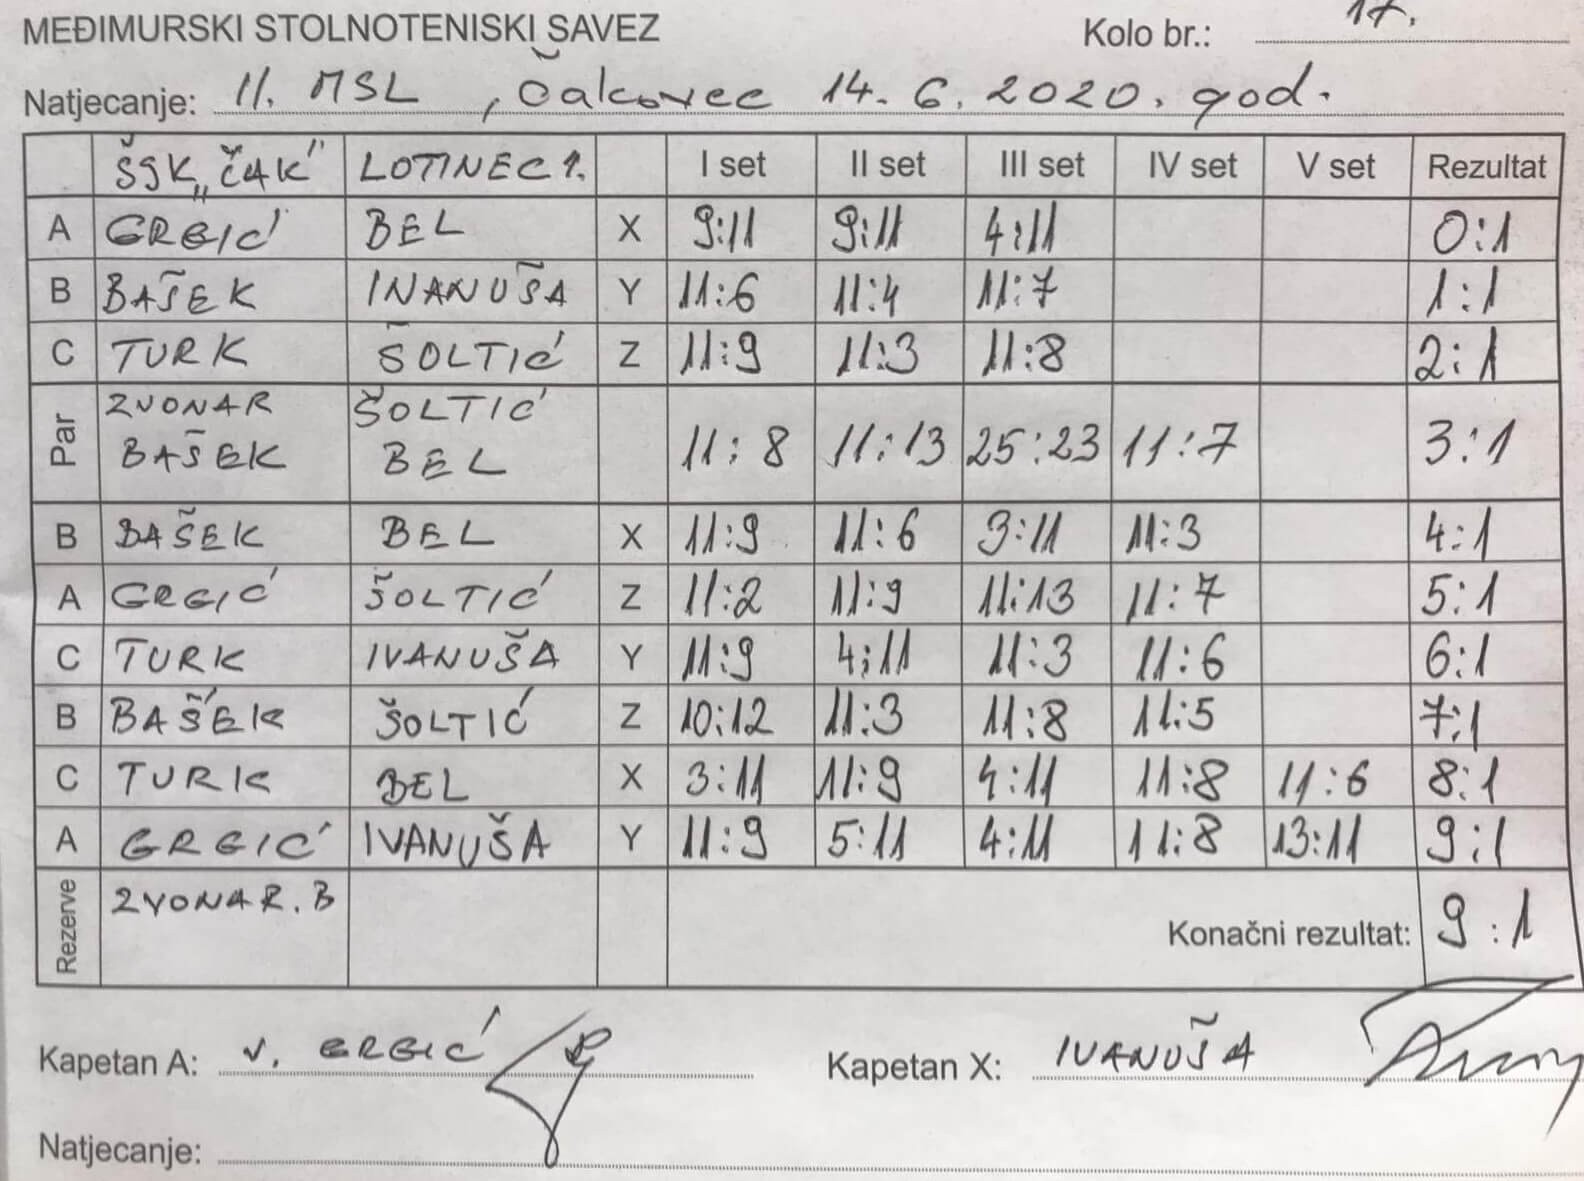 MEĐIMURSKI STOLNOTENISKI SAVEZ Kolo br.: 17.
Natjecanje: II. MSL, Čakovec 14. 6. 2020. god.
ŠSK „ČAK" LOTINEC 1. I set II set III set IV set V set Rezultat
A GRGIĆ BEL X 9:11 9:11 4:11 0:1
B BAŠEK INANUŠA Y 11:6 11:4 11:7 1:1
C TURK ŠOLTIĆ Z 11:9 11:3 11:8 2:1
Par ZVONAR BAŠEK ŠOLTIĆ BEL 11:8 11:13 25:23 11:7 3:1
B BAŠEK BEL X 11:9 11:6 3:11 11:3 4:1
A GRGIĆ ŠOLTIĆ Z 11:2 11:9 11:13 11:7 5:1
C TURK IVANUŠA Y 11:9 4:11 11:3 11:6 6:1
B BAŠEK ŠOLTIĆ Z 10:12 11:3 11:8 11:5 7:1
C TURK BEL X 3:11 11:9 4:11 11:8 11:6 8:1
A GRGIĆ IVANUŠA Y 11:9 5:11 4:11 11:8 13:11 9:1
Rezerve ZVONAR. B Konačni rezultat: 9:1
Kapetan A: V. GRGIĆ Kapetan X: IVANUŠA
Natjecanje: